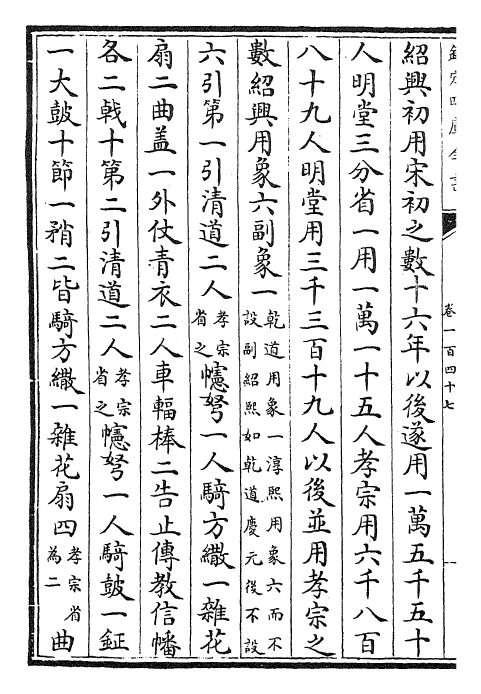 欽定四庫全書
卷一百四十七
紹興初用宋初之數十六年以後遂用一萬五千五十
人明堂三分省一用一萬一十五人孝宗用六千八百
八十九人明堂用三千三百十九人以後並用孝宗之
數紹興用象六副象一乾道用象一淳熙用象六而不設副紹熙如乾道慶元後不設
六引第一引清道二人孝宗省之幰弩一人騎方繖一雜花
扇二曲盖一外仗青衣二人車輻棒二告止傳教信幡
各二戟十第二引清道二人孝宗省之幰弩一人騎鼓一鉦
一大鼓十節一矟二皆騎方繖一雜花扇四孝宗省為二曲